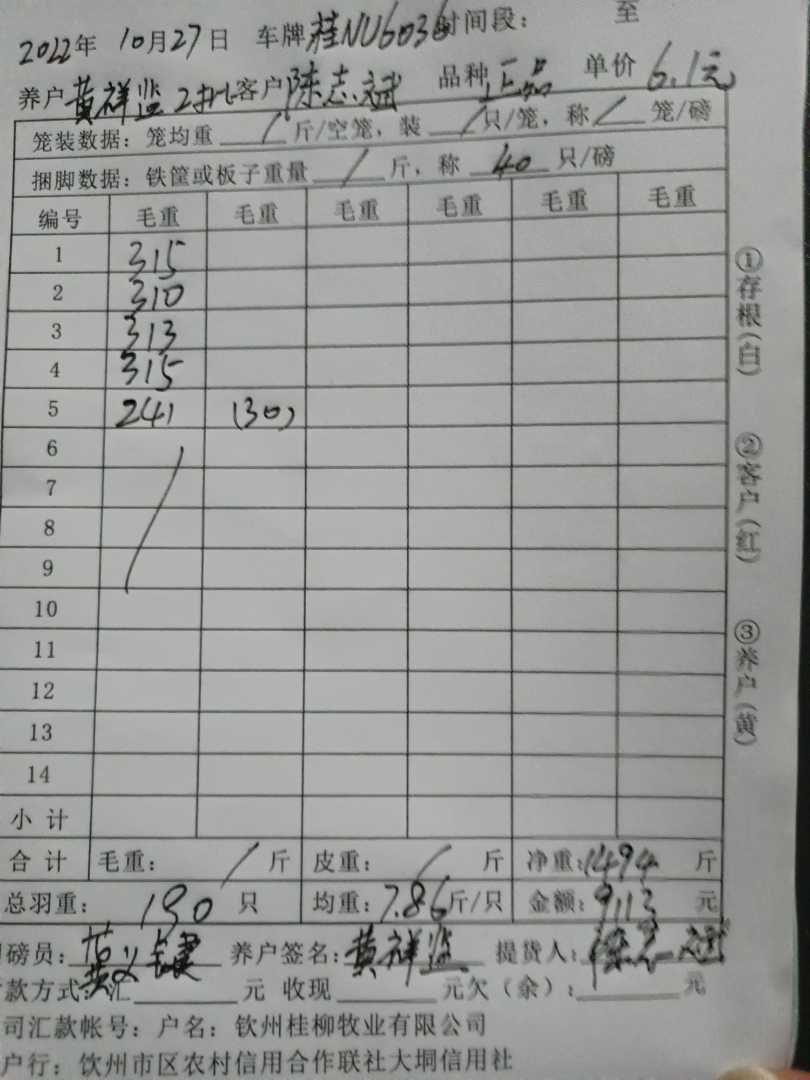 2022年 10月27日 车牌 桂NU6036 时间段： 至
养户 黄祥监 2批 客户 陈志斌 品种 正品 单价 6.1元
笼装数据：笼均重 / 斤/空笼，装 / 只/笼，称 / 笼/磅
捆脚数据：铁筐或板子重量 / 斤，称 40 只/磅
编号 毛重 毛重 毛重 毛重 毛重 毛重
1 315
2 310
3 313
4 315
5 241 (30)
6
7
8
9
10
11
12
13
14
小计
合计 毛重： / 斤 皮重： / 斤 净重：1494 斤
总羽重： 190 只 均重：7.86斤/只 金额：9113 元
磅员： 养户签名：黄祥监 提货人：陈志斌
款方式：汇 元 收现 元欠（余）： 元
司汇款帐号：户名：钦州桂柳牧业有限公司
户行：钦州市区农村信用合作联社大垌信用社
①存根(白)
②客户(红)
③养户(黄)